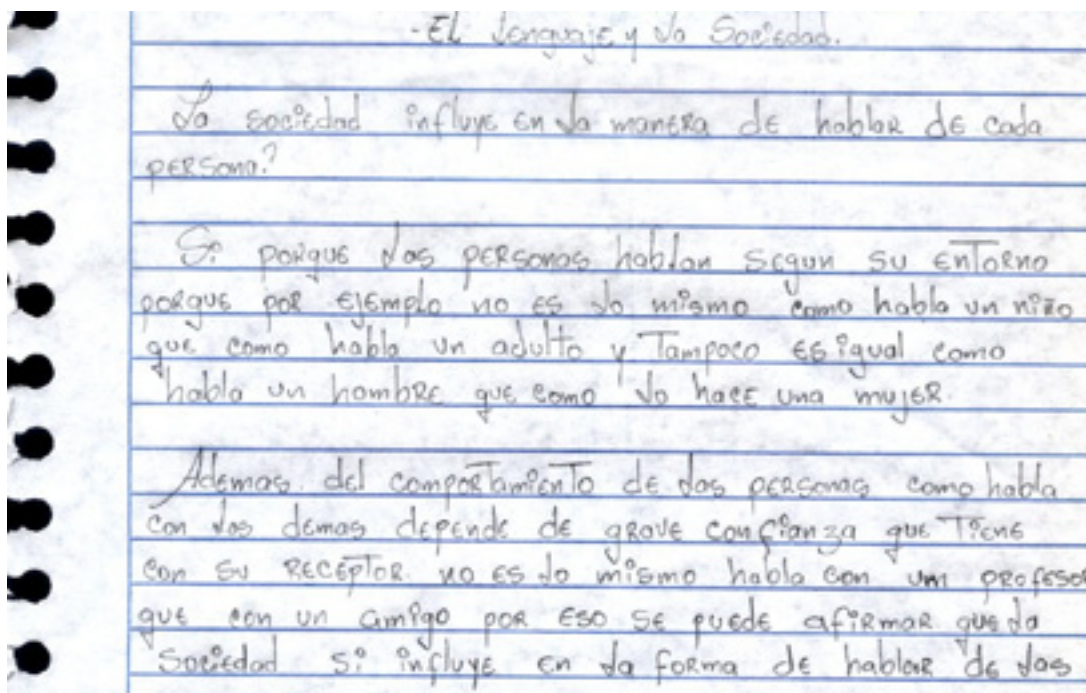 -El lenguaje y la Sociedad.
La sociedad influye en la manera de hablar de cada
persona?
Si porque las personas hablan segun su entorno
porque por ejemplo no es lo mismo como habla un niño
que como habla un adulto y Tampoco es igual como
habla un hombre que como lo hace una mujer.
Ademas. del comportamiento de las personas como habla
con los demas depende de grave confianza que Tiene
con su receptor. no es lo mismo habla con um profesor
que con un amigo por eso se puede afirmar que la
Sociedad si influye en la forma de hablar de las